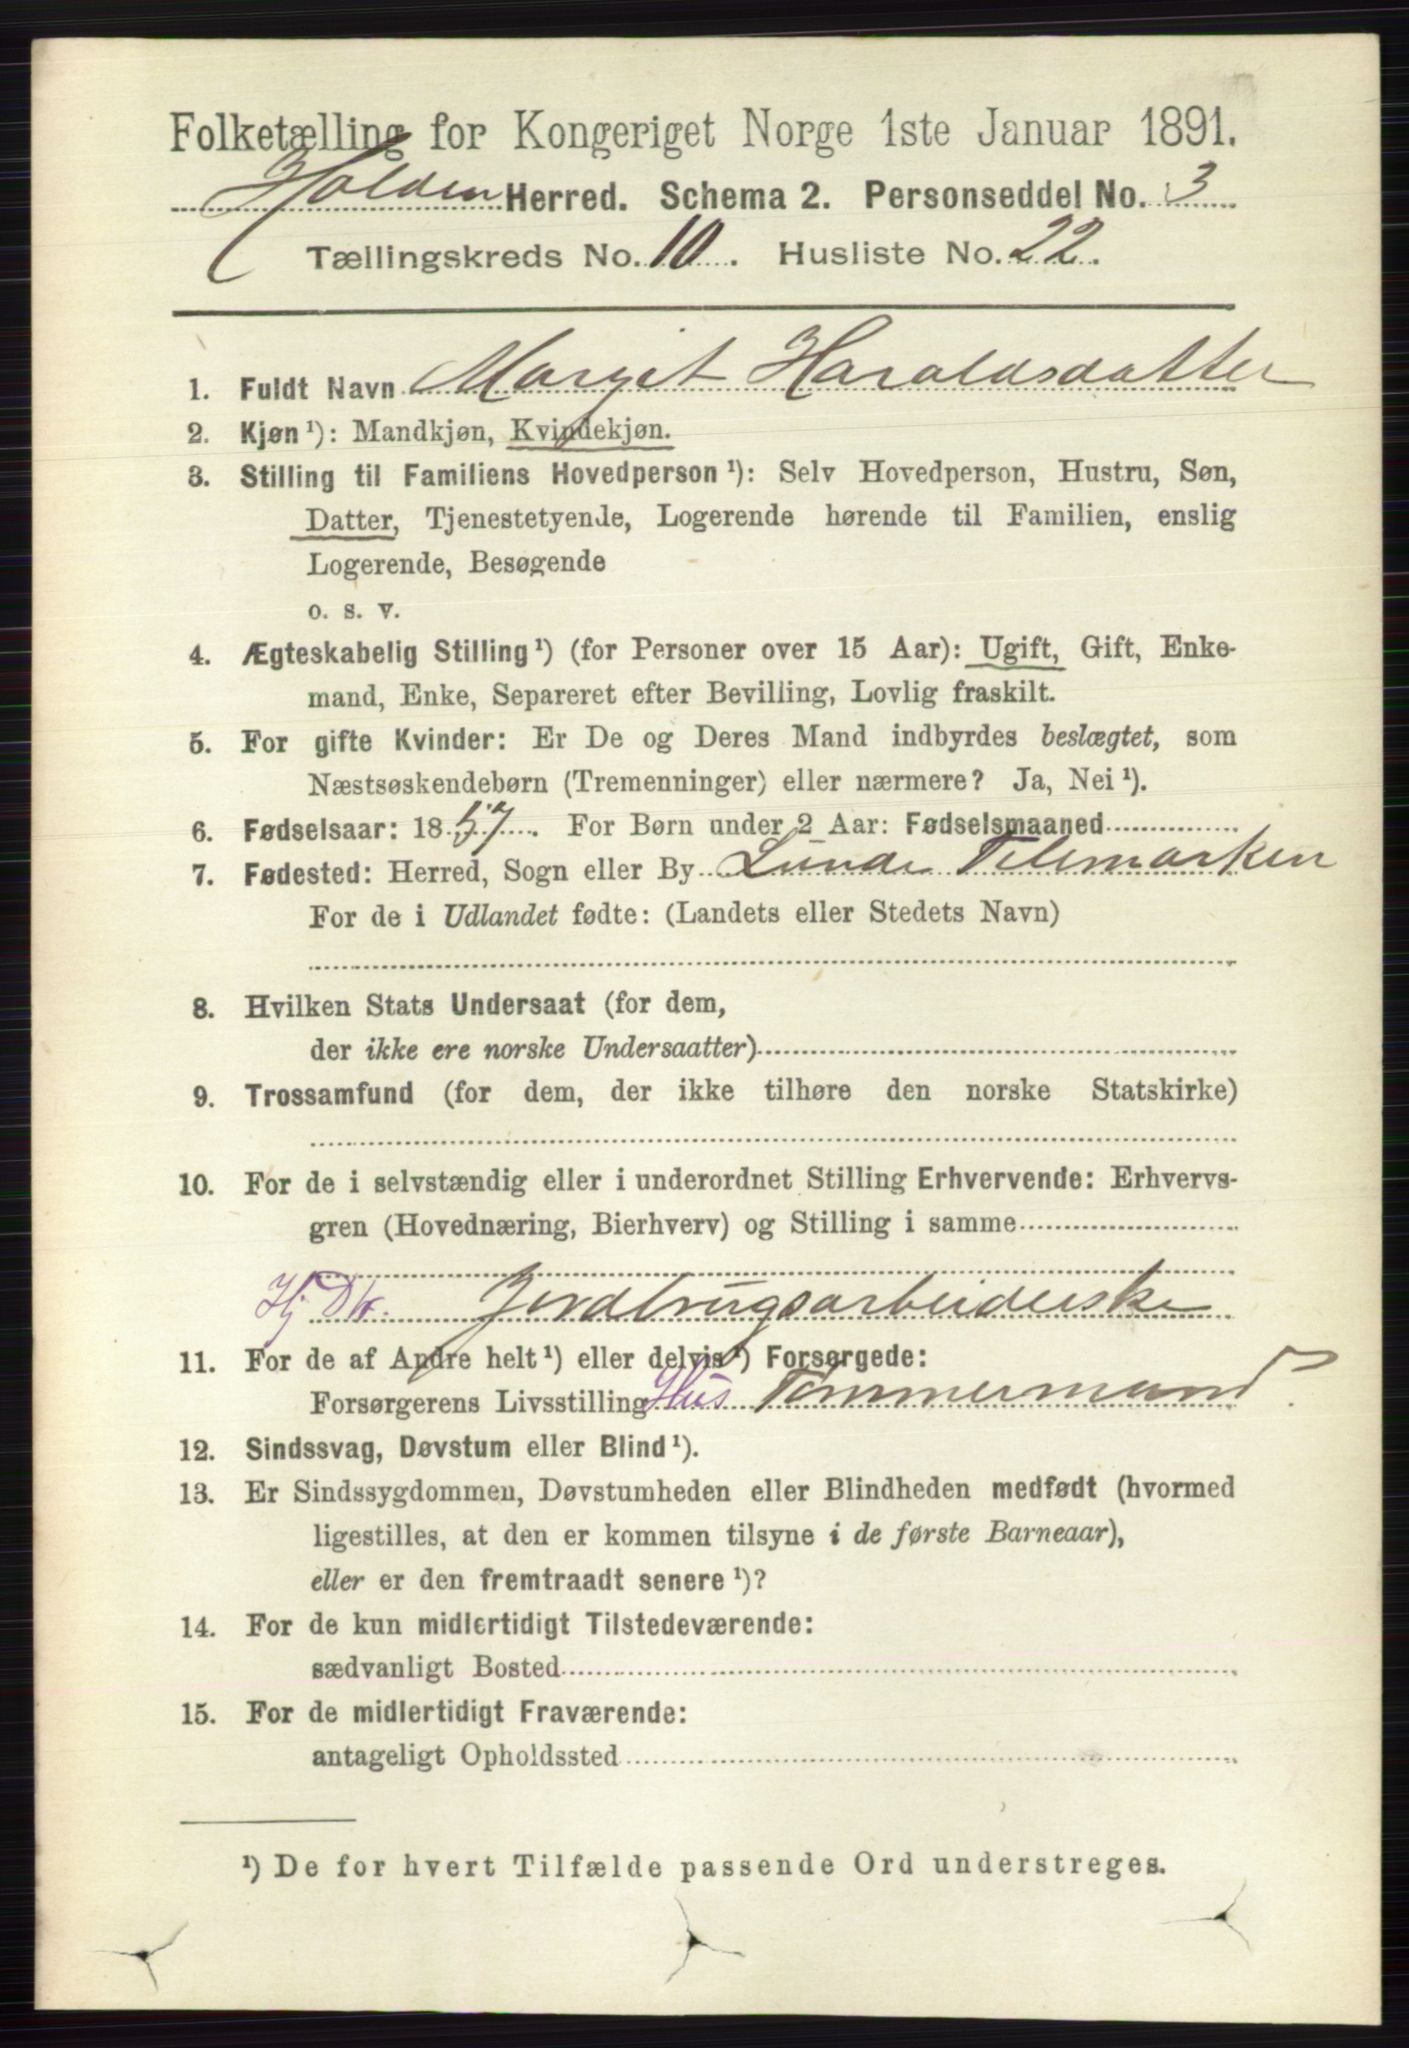 Folketælling for Kongeriget Norge 1ste Januar 1891.
Holden Herred. Schema 2. Personseddel No. 3
Tællingskreds No. 10. Husliste No. 22.
1. Fuldt Navn Margit Haraldsdatter
2. Kjøn ¹): Mandkjøn, Kvindekjøn.
3. Stilling til Familiens Hovedperson ¹): Selv Hovedperson, Hustru, Søn,
Datter, Tjenestetyende, Logerende hørende til Familien, enslig
Logerende, Besøgende
o. s. v.
4. Ægteskabelig Stilling ¹) (for Personer over 15 Aar): Ugift, Gift, Enke-
mand, Enke, Separeret efter Bevilling, Lovlig fraskilt.
5. For gifte Kvinder: Er De og Deres Mand indbyrdes beslægtet, som
Næstsøskendebørn (Tremenninger) eller nærmere? Ja, Nei ¹).
6. Fødselsaar: 1857. For Børn under 2 Aar: Fødselsmaaned
7. Fødested: Herred, Sogn eller By Lunde Telemarken
For de i Udlandet fødte: (Landets eller Stedets Navn)
8. Hvilken Stats Undersaat (for dem,
der ikke ere norske Undersaatter)
9. Trossamfund (for dem, der ikke tilhøre den norske Statskirke)
10. For de i selvstændig eller i underordnet Stilling Erhvervende: Erhvervs-
gren (Hovednæring, Bierhverv) og Stilling i samme
Hj Dtr. Jordbrugsarbeiderske
11. For de af Andre helt ¹) eller delvis ¹) Forsørgede:
Forsørgerens Livsstilling Hus Tømmermand ?
12. Sindssvag, Døvstum eller Blind ¹).
13. Er Sindssygdommen, Døvstumheden eller Blindheden medfødt (hvormed
ligestilles, at den er kommen tilsyne i de første Barneaar),
eller er den fremtraadt senere ¹)?
14. For de kun midlertidigt Tilstedeværende:
sædvanligt Bosted
15. For de midlertidigt Fraværende:
antageligt Opholdssted
¹) De for hvert Tilfælde passende Ord understreges.